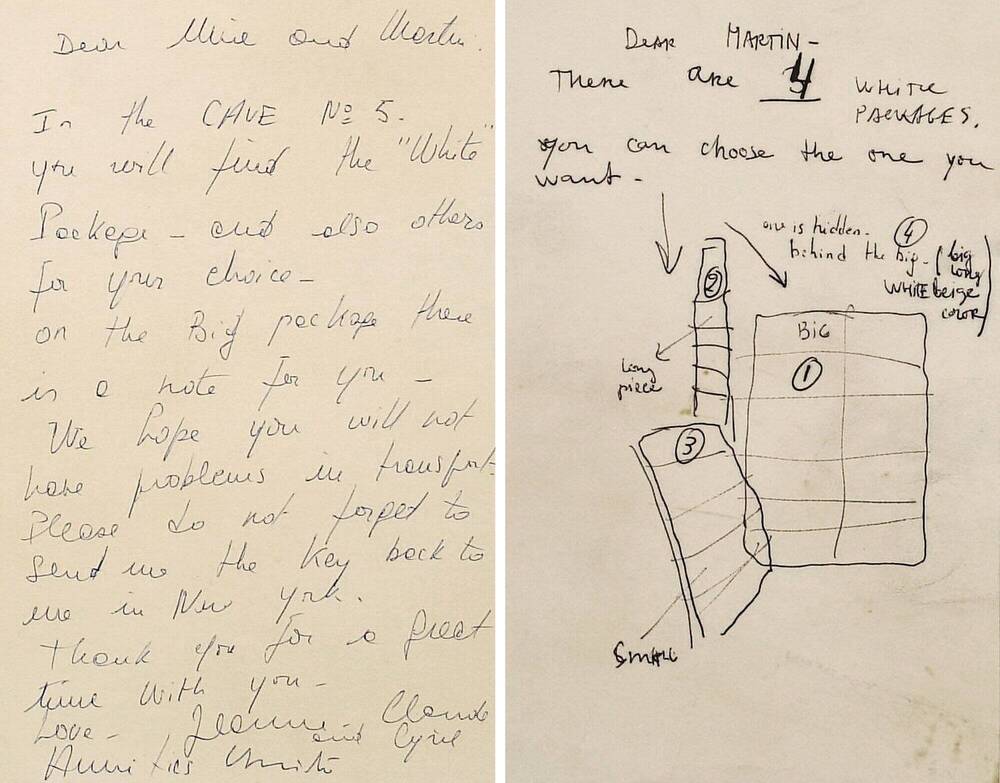 Dear Mine and Martin.
In the CAVE No 5.
you will find the "White"
Package - and also others
for your choice -
on the Big package there
is a note for you -
We hope you will not
have problems in transport -
Please do not forget to
send me the key back to
me in New York.
thank you for a great
time with you -
Love - Jeanne - Claude
and Cyril
Christo
DEAR MARTIN -
There are 4 WHITE
PACKAGES.
you can choose the one you
want -
one is hidden -
behind the big - 4 (big
long
WHITE beige
color)
2
long
piece
BIG
1
3
SMALL